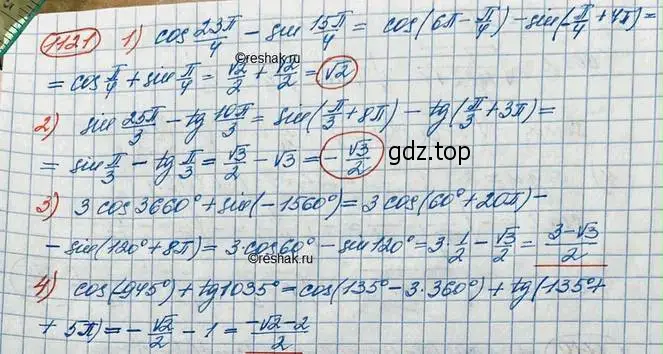 1121 1) cos 23π/4 - sin 15π/4 = cos(6π - π/4) - sin(-π/4 + 4π) =
= cos π/4 + sin π/4 = √2/2 + √2/2 = √2
©reshak.ru
2) sin 25π/3 - tg 10π/3 = sin(π/3 + 8π) - tg(π/3 + 3π) =
= sin π/3 - tg π/3 = √3/2 - √3 = -√3/2
©reshak.ru
gdz.top
3) 3 cos 3660° + sin(-1560°) = 3 cos(60° + 20π) -
- sin(120° + 8π) = 3·cos60° - sin120° = 3·1/2 - √3/2 = 3-√3/2
©reshak.ru
4) cos(-945°) + tg1035° = cos(135° - 3·360°) + tg(135° +
+ 5π) = -√2/2 - 1 = -√2-2/2
©reshak.ru